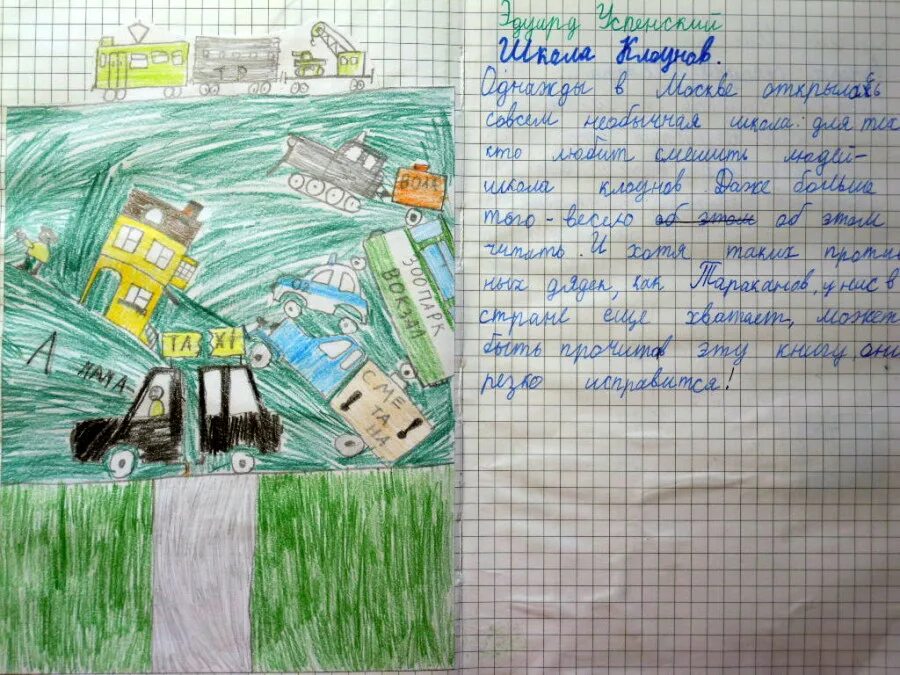 ВОДА
ЗООПАРК
ВОКЗАЛ
ТА
! СМЕ
ТА
НА !
Эдуард Успенский
Школа Клоунов.
Однажды в Москве открылась
совсем необычная школа: для тех
кто любит смешить людей-
школа клоунов Даже больше
того - весело об этом об этом
читать. И хотя таких проти
ных дядек, как Тараканов, у нас в
стране еще хватает, может
быть прочитав эту книгу они
резко исправится!